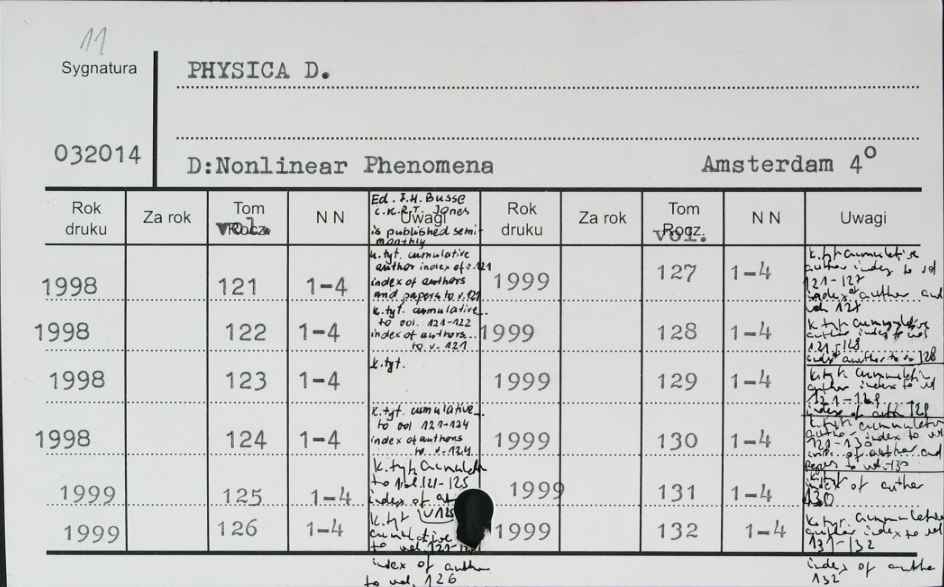 11
Sygnatura
PHYSICA D.
032014
D:Nonlinear Phenomena Amsterdam 4°
Rok druku Za rok Tom Rocz. vol. N N Uwagi Rok druku Za rok Tom Rocz. vol. N N Uwagi
Ed. F.H. Busse
C.K.R.T. Jones
is published semi-
monthly
1998 121 1-4 k.tyt. cumulative
author index of v. 121
index of authors
and papers to v. 121
1998 122 1-4 k.tyt. cumulative
to vol. 121-122
index of authors
to v. 121
1998 123 1-4 k.tyt.
1998 124 1-4 k.tyt. cumulative
to vol 121-124
index of authors
to v. 124
1999 125 1-4 k.tyt. cumulativ
to vol. 121-125
index of
v 125
1999 126 1-4 k.tyt
cumulative
to vol. 121-
index of author
to vol. 126
1999 127 1-4 k.tyt cumulative
author index to vol
121-127
index of author and
vol. 127
1999 128 1-4 k.tyt cumulative
author index to vol
121-128
index author to v. 128
1999 129 1-4 k.tyt. cumulativ
author index to vol
121-129
index of auth 129
1999 130 1-4 k.tyt cumulative
author index to vol
121-130
of author and
papers to vol. 130
1999 131 1-4 k.tyt
index of author
130
1999 132 1-4 k.tyt. cumulative
author index to vol
131-132
index of autho
132